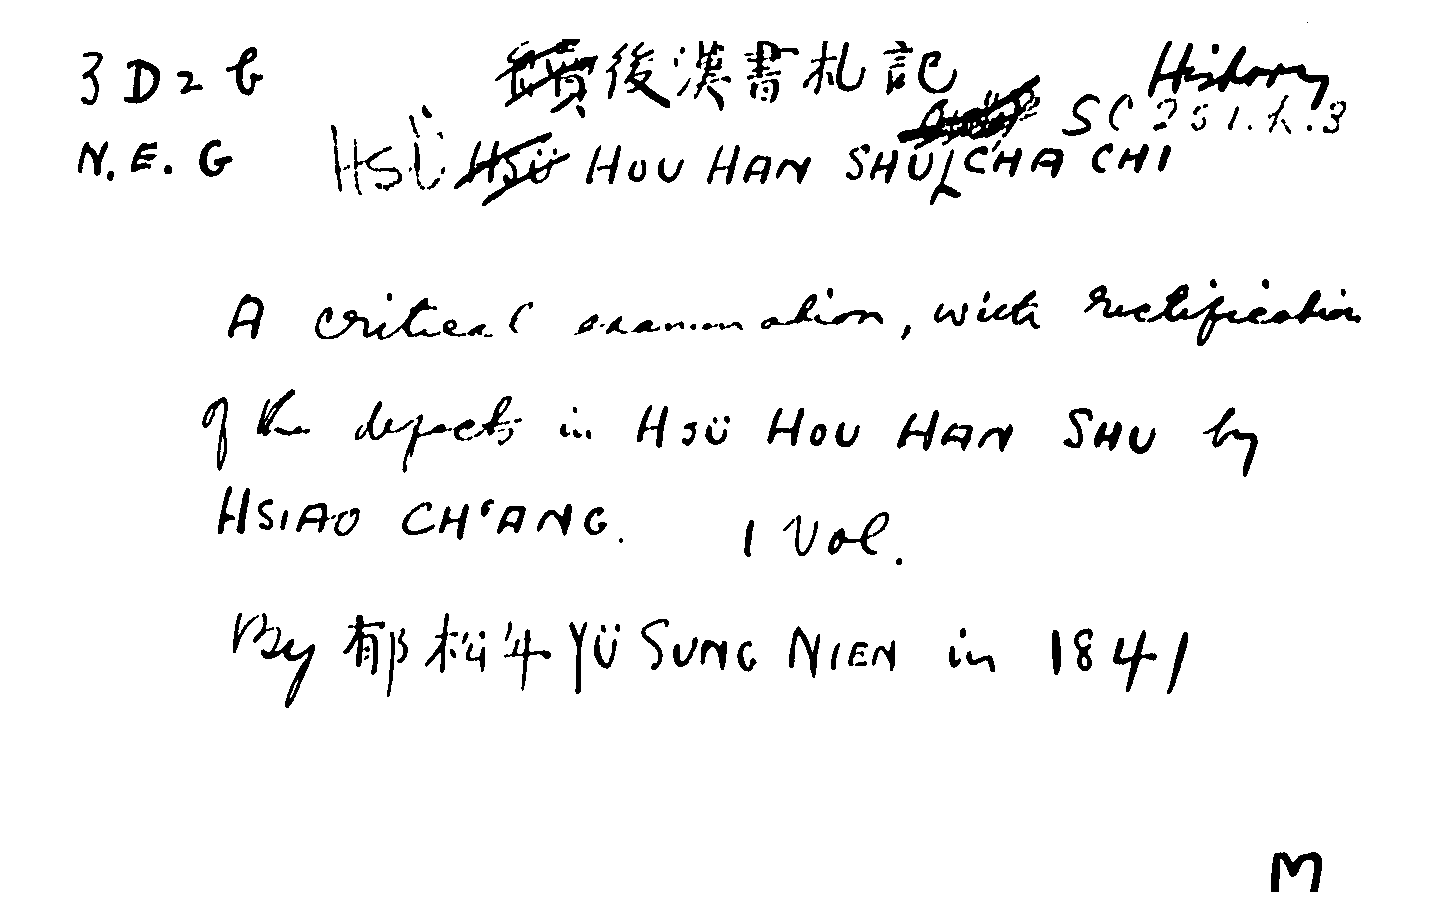 3 D 2 b 續後漢書札記 History
SC 251.h.3
N.E.G HSÜ HSÜ HOU HAN SHU CHA CHI
A critical examination, with rectification
of the defects in HSÜ HOU HAN SHU by
HSIAO CH'ANG. 1 Vol.
By 郁松年 YÜ SUNG NIEN in 1841
M